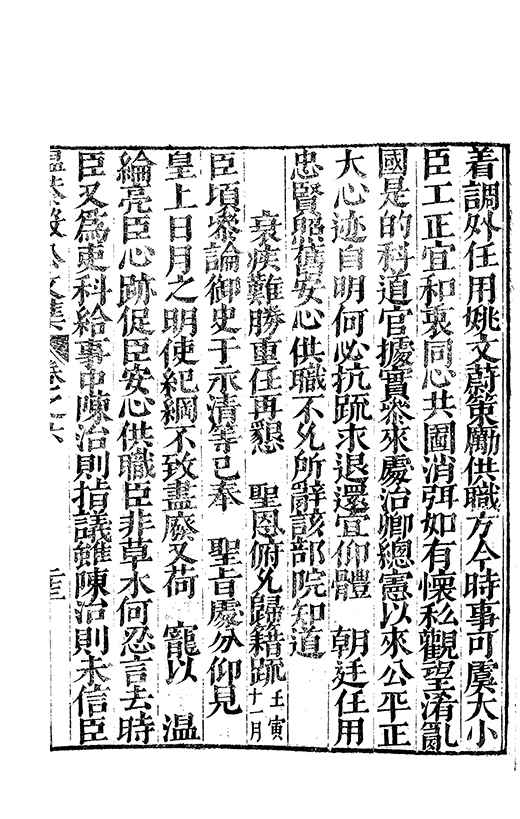 着調外任用姚文蔚策勵供職方今時事可虞大小
臣工正宜和衷同心共圖消弭如有懷私觀望淆亂
國是的科道官據實參來處治卿總憲以來公平正
大心迹自明何必抗疏求退還宜仰體　朝廷任用
忠賢照舊安心供職不允所辭該部院知道
衰疾難勝重任再懇　聖恩俯允歸籍疏壬寅十一月
臣頃參論御史于永清等已奉　聖旨處分仰見
皇上日月之明使紀綱不致盡廢又荷　寵以　溫
綸亮臣心跡促臣安心供職臣非草木何忍言去時
臣又爲吏科給事中陳治則指議雖陳治則未信臣
溫恭毅公文集　卷之六　二三